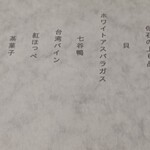 貝
ホワイトアスパラガス
七谷鴨
台湾パイン
紅ほっぺ
茶菓子